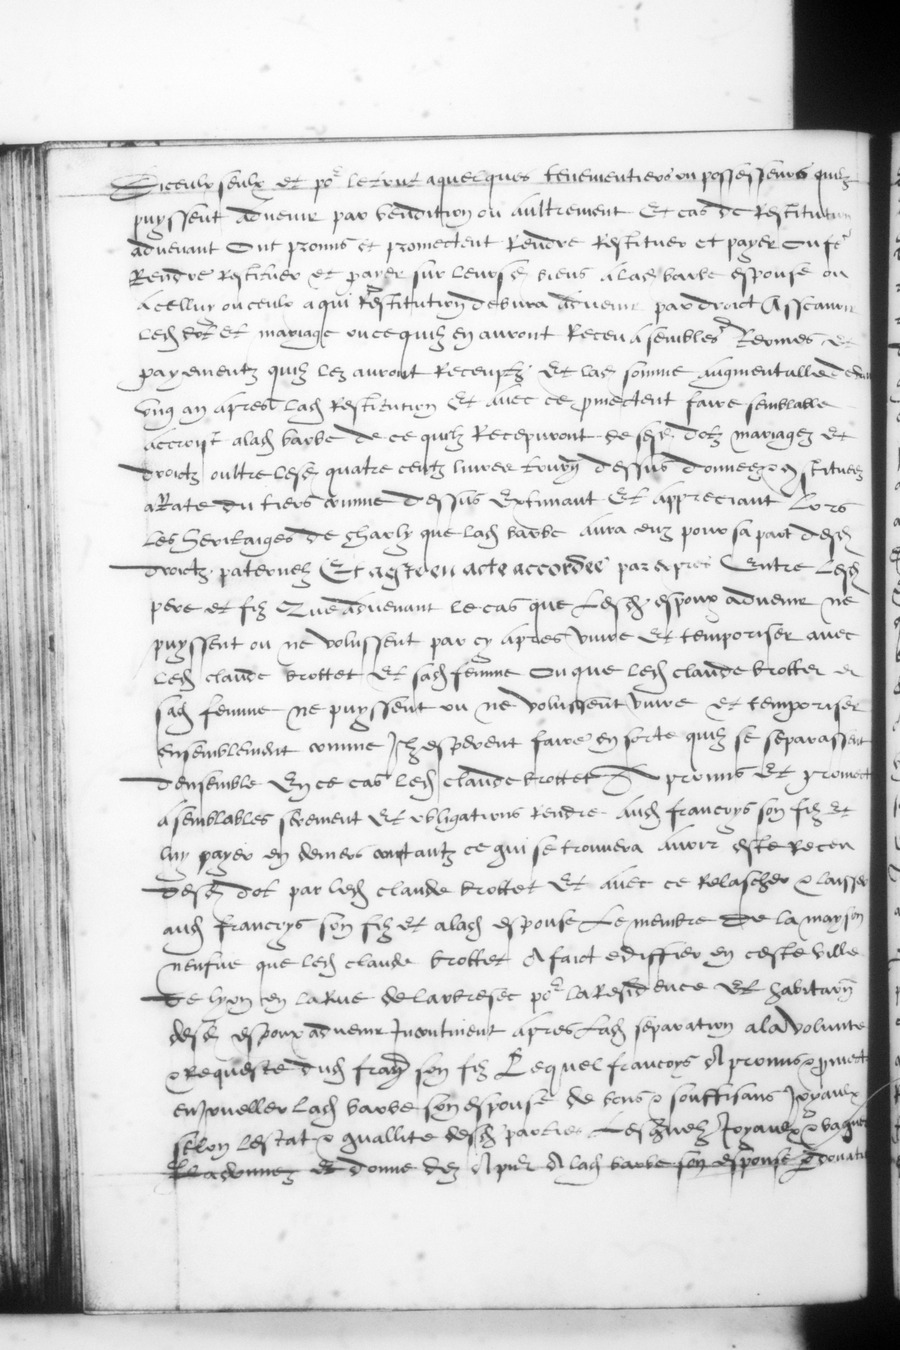 Diceulx seulx et po^r le tout a quelques tenementiers ou possesseurs quilz
puyssent advenir par vendition ou aultrement Et cas de Restitution
advenant Ont promis et promectent Rendre Restituer et payer
Rendre Restituer et payer sur leursd biens a lad barbe espouse ou
a celluy ou ceulx a qui Restitution debvra advenir par droict Asscavoir
led dot et mariage ou ce quilz en auront Receu a semblables termes et
payementz quilz les auront Receupz Et lad somme augmentalle dedans
ung an apres lad Restitution Et avec ce pmectent faire semblable
accroist a lad barbe de ce quilz Recepvront de sesd dotz mariages et
droictz oultre lesd quatre centz livres tourn dessus donnees constituees
a Rate du tiers comme dessus extimant Et appreciant Lors
les heritaiges de charly que lad barbe aura euz pour sa part desd
droictz paternelz Et a este en acte accordee par expres Entre lesd
pere et filz Que advenant le cas que lesd espoux advenir ne
puyssent ou ne volussent par cy apres vivre et temporiser avec
led claude trottet et sad femme Ou que led claude trottet et
sad femme ne puyssent ou ne volussent vivre et temporiser
ensemblement comme Ilz esperent faire en sorte quilz se separassent
densemble En ce cas led claude trottet A promis et promect
a semblables serement et obligations Rendre aud francoys son filz et
luy payer en deniers comptantz ce qui se trouvera avoir este Receu
desd dot par led claude trottet Et avec ce Relascher & laisser
aud francoys son filz et a lad espouse Le membre de la mayson
neufve que led claude trottet A faict ediffier en ceste ville
de lyon en la Rue de larbresec po^r la Residence et habitation
desd espoux advenir Incontinent apres lad separation a la volunte
& Requeste dud fran son filz Lequel francoys A promis & pmect
enjoueller lad barbe son espouse de bons & souffisans Joyaulx
selon lestat & quallite desd parties Lesquelz Joyaulx & bagues
Il a donnez et donne des A pnt A lad barbe son espouse